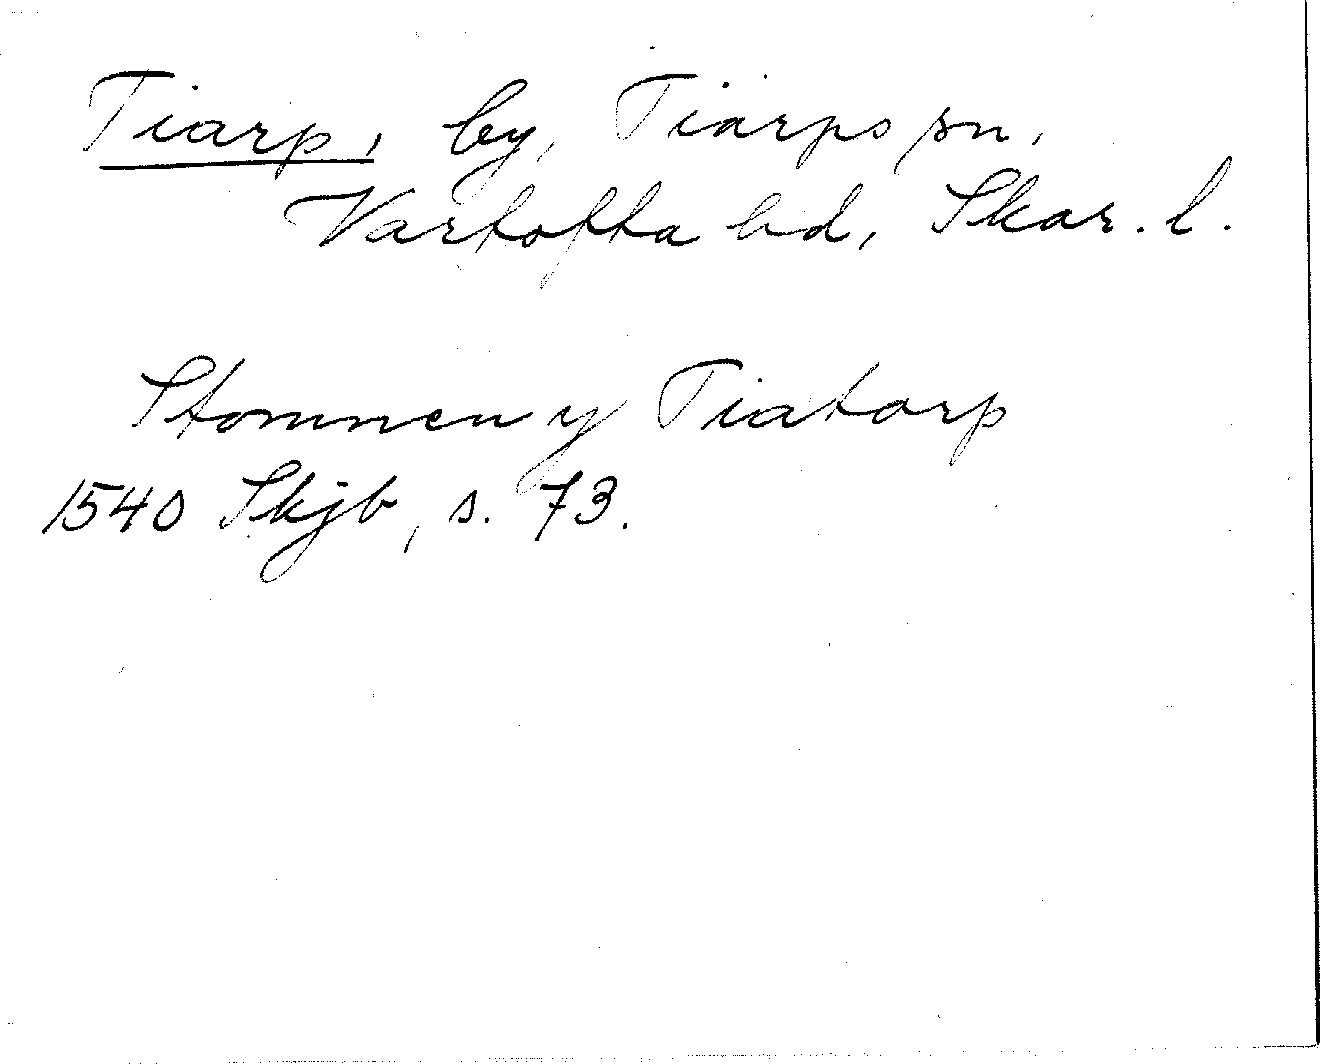 Tiarp, by, Tiarps sn,
Vartofta hd, Skar. l.
Stomnen y Tiatorp
1540 Skjb, s. 73.